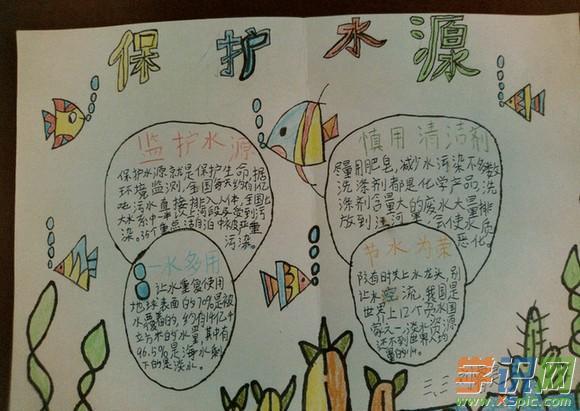 保护水源
监护水源
保护水源就是保护生命,据
环境监测,全国每天约有1亿
地污水直接排入人体,全国七
大水系中一半以上河段水质受到污
染。35个重点湖泊中被严重
污染。
慎用清洁剂
尽量用肥皂,减少水污染不多数
洗涤剂都是化学产品,洗
涤剂含量大的废水大量排
放到江河里,会使水质
恶化。
一水多用
让水重复使用
地球表面的70%是被
水覆盖的,约有14亿千
立方米的水量,其中有
96.5%是海水剩
下的是淡水。
节水为荣
随时关上水龙头,别
让水空流,我国是
世界上12个贫水国
家之一,淡水资源
还不到世界人均
量的1/4。
学识网
www.XSpic.com